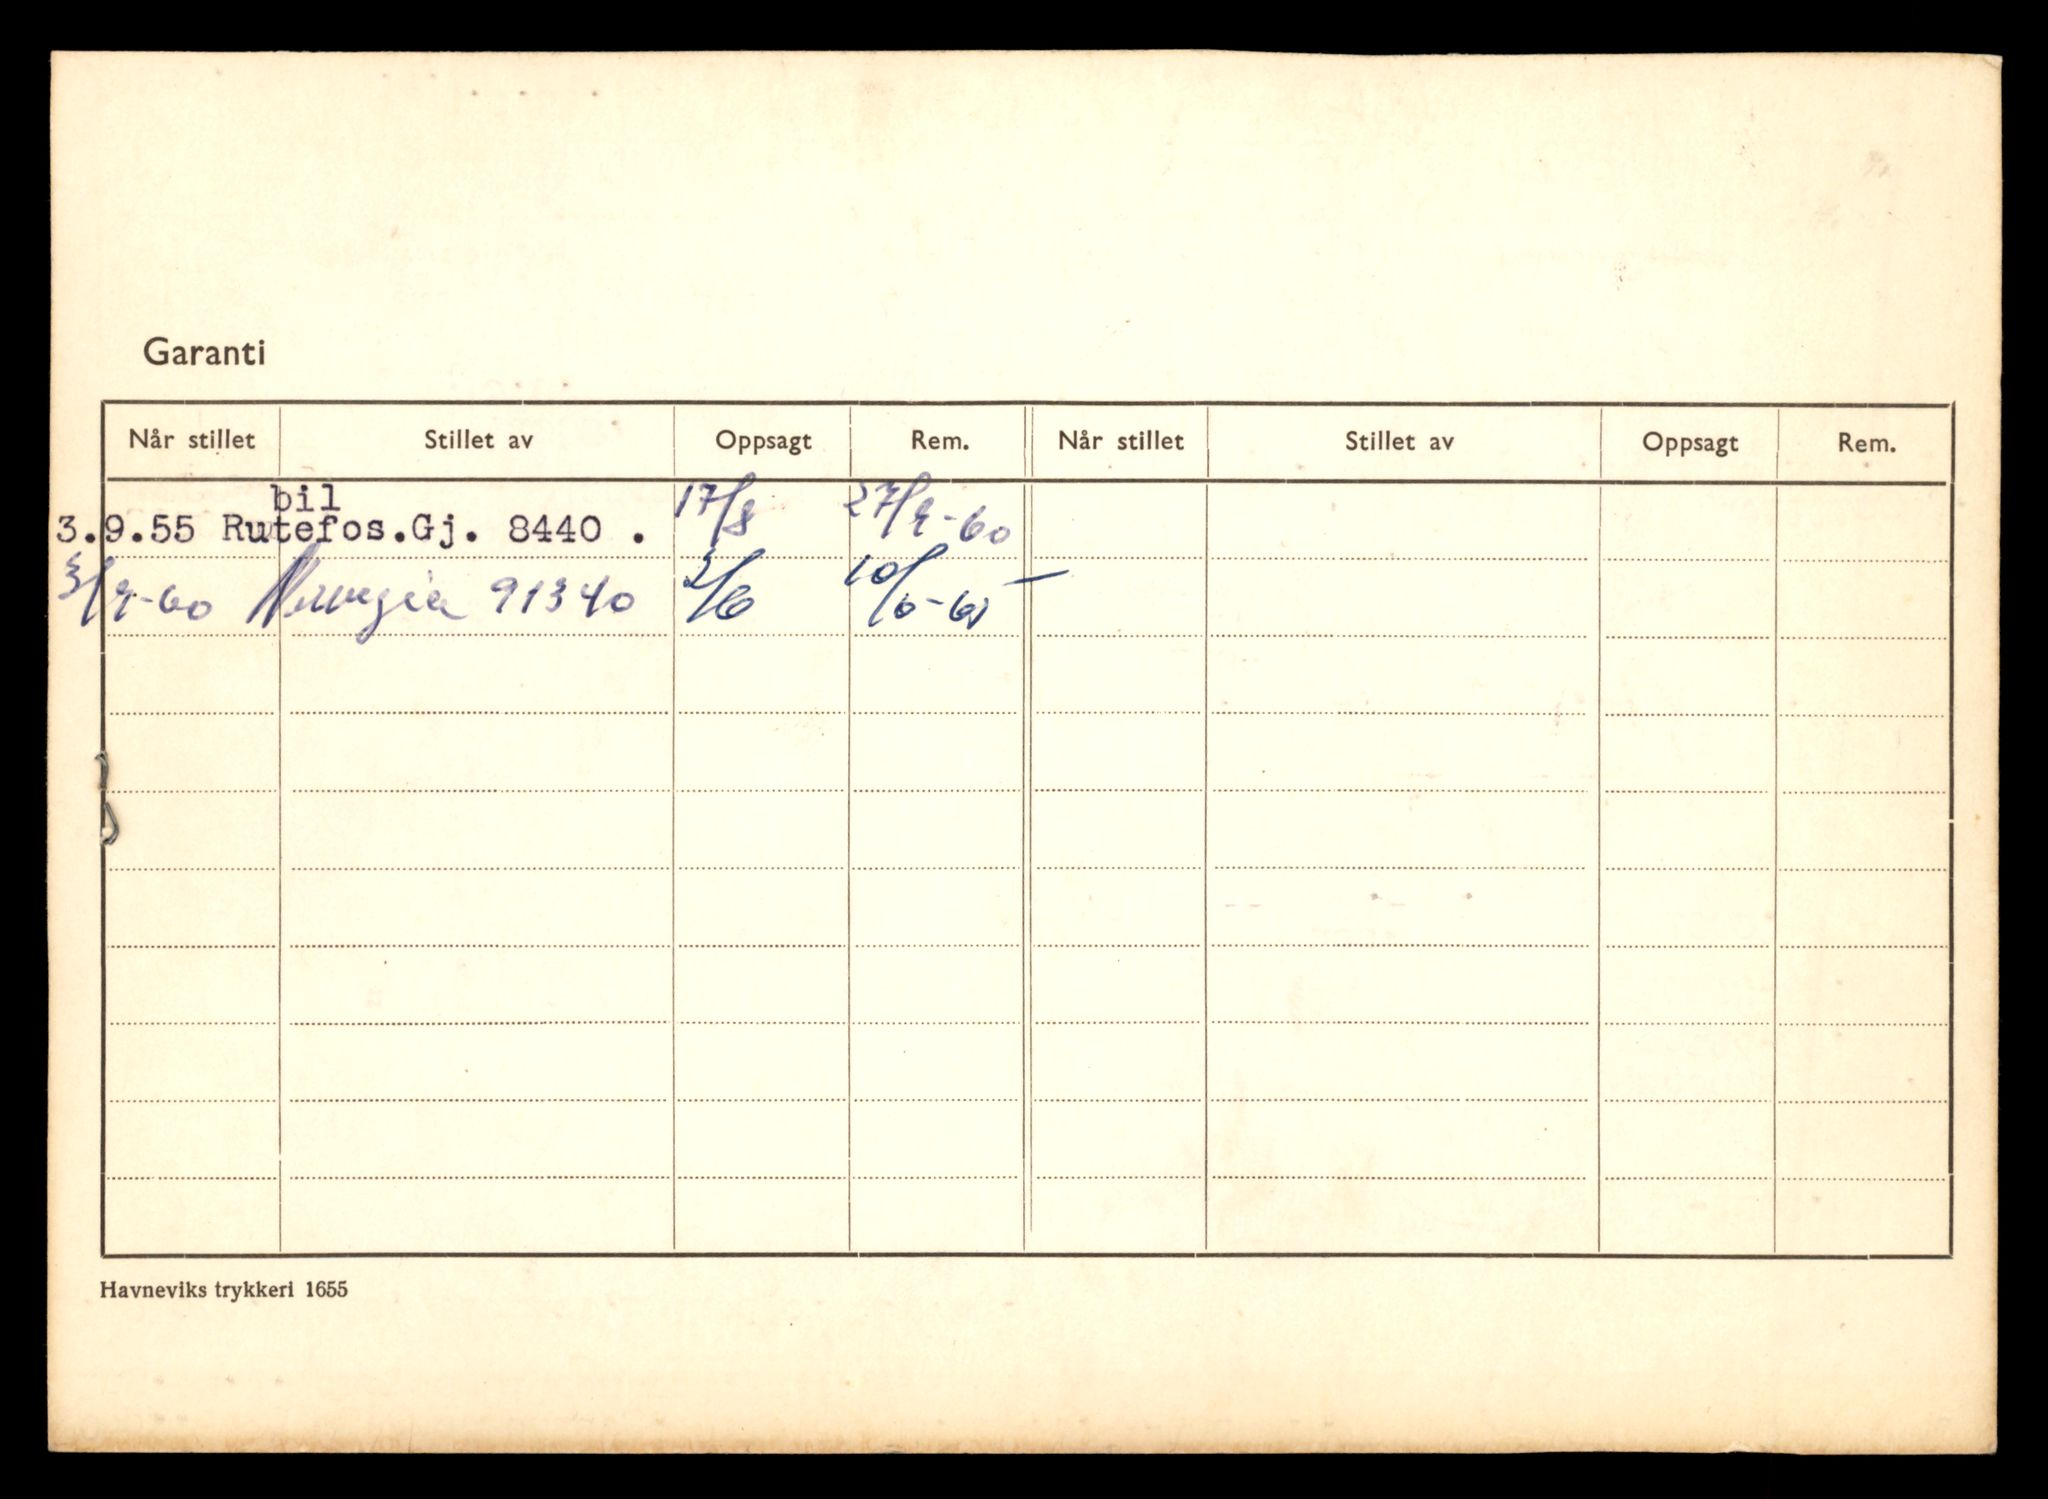 Garanti
Når stillet Stillet av Oppsagt Rem. Når stillet Stillet av Oppsagt Rem.
bil
3.9.55 Rutefos.Gj. 8440 . 17/8 27/9-60
3/9-60 Norvegia 91340 2/6 10/6-65
Havneviks trykkeri 1655